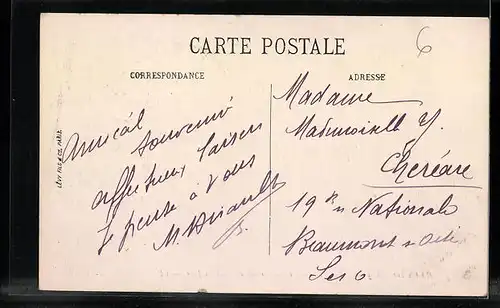 CARTE POSTALE
6
CORRESPONDANCE
ADRESSE
Amical
souvenir
affectueux baisers
Je pense à vous
Madame
Mademoiselle Y.
Cheréau
19 Rue Nationale
Beaumont s
LÉVY FILS & CIE PARIS